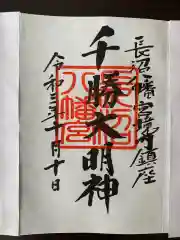 長沼八幡宮鎮座
千勝大明神
令和三年十月十日
長沼
八幡宮